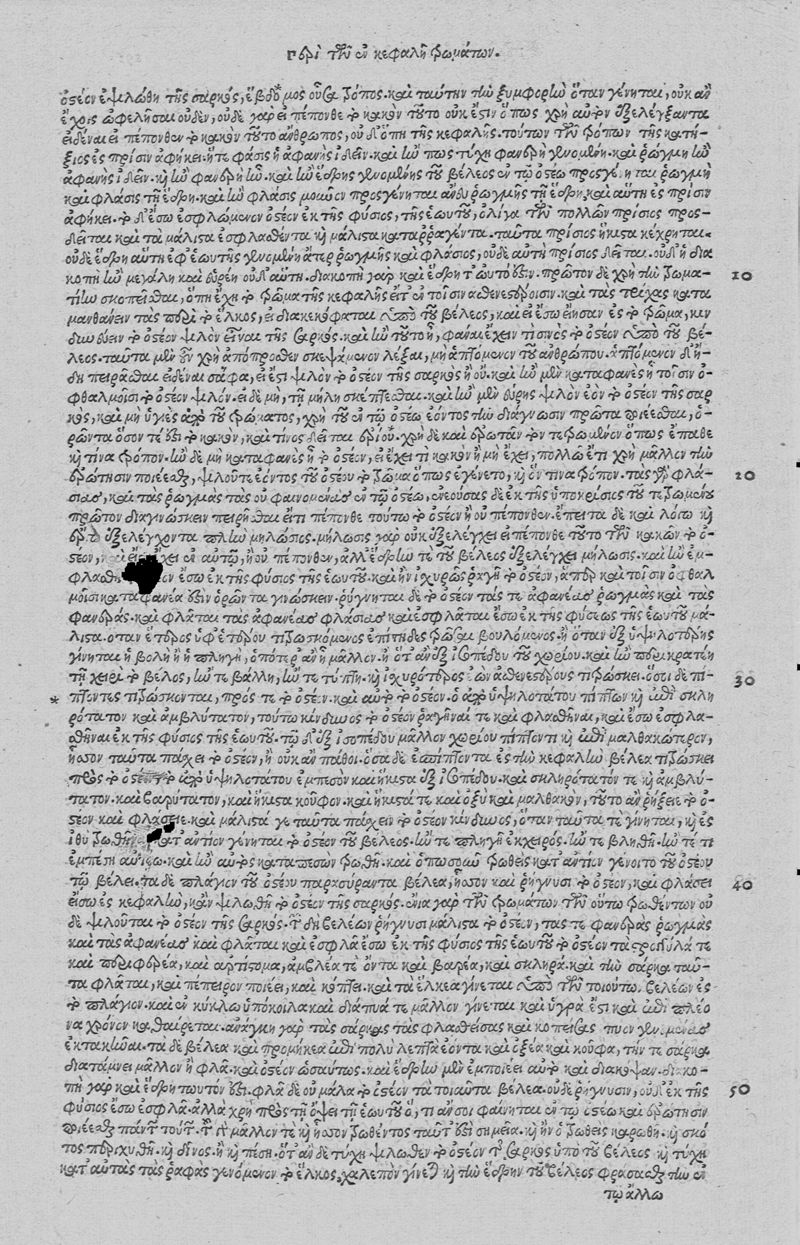 Περὶ τῶν ἐν κεφαλῇ τρωμάτων.
ὀστέον ἐψιλώθη τῆς σαρκὸς, ἕβδομος οὗτος τρόπος. καὶ ταύτην τὴν ξυμφορὴν ὅταν γένηται, οὐκ ἂν
ἔχοις ὠφελῆσαι οὐδὲν, οὐδὲ γὰρ εἰ πέπονθε τὸ κακὸν τοῦτο οὐκ ἔστιν ὅπως χρὴ αὐτὸν ἐξελέγξαντα
εἰδέναι εἰ πέπονθεν τὸ κακὸν τοῦτο ἄνθρωπος, οὐδ' ὅπη τῆς κεφαλῆς. τούτων τῶν τρόπων τῆς κατή-
ξιος ἐς πρίσιν ἀφήκει. ἥτε φλάσις ἡ ἀφανὴς ἰδεῖν. καὶ ἤν πως τύχῃ φανερὴ γινομένη. καὶ ῥωγμὴ ἢν
ἀφανὴς ἰδεῖν. κἢν φανερὴ ᾖ. καὶ ἢν ἕδρης γινομένης τοῦ βέλεος ἐν τῷ ὀστέῳ προσγένηται ῥωγμὴ
καὶ φλάσις τῇ ἕδρῃ. καὶ ἢν φλάσις μοῦνον προσγένηται ἄνευ ῥωγμῆς τῇ ἕδρῃ. καὶ αὕτη ἐς πρίσιν
ἀφήκει. τὸ δ' ἔσω ἐσφλώμενον ὀστέον ἐκ τῆς φύσιος, τῆς ἑωυτοῦ, ὀλίγα τῶν πολλῶν πρίσιος προσ-
δεῖται καὶ τὰ μάλιστα ἐσφλασθέντα κὴ μάλιστα καταῤῥαγέντα. ταῦτα πρίσιος ἥκιστα κέχρηται.
οὐδὲ ἕδρη αὕτη ἐφ' ἑωυτῆς γινομένη ἄτερ ῥωγμῆς καὶ φλάσιος, οὐδὲ αὐτὴ πρίσιος δεῖται. οὐδ' ἡ δια
κοπὴ ἢν μεγάλη καὶ εὐρέη οὐδ' αὕτη. διακοπὴ γὰρ καὶ ἕδρη τωὐτό ἐστιν. πρῶτον δὲ χρὴ τὸν τρωμα- 10
τίην σκοπεῖσθαι, ὅπη ἔχει τὸ τρῶμα τῆς κεφαλῆς εἴτ' ἐν τοῖσιν ἀσθενεστέροισιν. καὶ τὰς τρίχας κατα
μανθάνειν τὰς περὶ τὸ ἕλκος, εἰ διακεκόφαται ὑπὸ τοῦ βέλεος, καὶ εἰ ἔσω ᾔεισαν ἐς τὸ τρῶμα, κιν
δυνεύειν τὸ ὀστέον ψιλὸν εἶναι τῆς σαρκός. καὶ ἢν τοῦτο ᾖ, φάναι ἔχειν τι σίνος τὸ ὀστέον ὑπὸ τοῦ βέ-
λεος. ταῦτα μὲν οὖν χρὴ ἀπόπροσθεν σκεψάμενον λέξαι, μὴ ἁπτόμενον τοῦ ἀνθρώπου. ἁπτόμενον δ' ἤ-
δη πειρᾶσθαι εἰδέναι σάφα, εἰ ἔστι ψιλὸν τὸ ὀστέον τῆς σαρκὸς ἢ οὔ. καὶ ἢν μὲν καταφανὲς ᾖ τοῖσιν ὀ-
φθαλμοῖσι τὸ ὀστέον ψιλόν. εἰ δὲ μὴ, τῇ μήλῃ σκέπτεσθαι. καὶ ἢν μὲν εὕρῃς ψιλὸν ἐὸν τὸ ὀστέον τῆς σαρ
κὸς, καὶ μὴ ὑγιὲς ἀπὸ τοῦ τρώματος, χρὴ τοῦ ἐν τῷ ὀστέῳ ἐόντος τὴν διάγνωσιν πρῶτα ποιέεσθαι, ὁ-
ρῶντα ὅσον τέ ἐστι τὸ κακὸν, καὶ τίνος δεῖται ἔργου. χρὴ δὲ καὶ ἐρωτᾶν τὸν τετρωμένον ὅπως ἔπαθε
κὴ τίνα τρόπον. ἢν δὲ μὴ καταφανὲς ᾖ τὸ ὀστέον, εἰ ἔχει τι κακὸν ἢ μὴ ἔχει, πολλῷ ἔτι χρὴ μᾶλλον τὴν
ἐρώτησιν ποιέεσθαι, ψιλοῦ τε ἐόντος τοῦ ὀστέου τὸ τρῶμα ὅπως ἐγένετο, κὴ ὅντινα τρόπον. τὰς γὰρ φλά- 20
σιας, καὶ τὰς ῥωγμὰς τὰς οὐ φαινομένας ἐν τῷ ὀστέῳ, ἐνεούσας δὲ ἐκ τῆς ὑποκρίσιος τοῦ τετρωμένου
πρῶτον διαγινώσκειν πειρῆσθαι εἴτι πέπονθε τούτων τὸ ὀστέον ἢ οὐ πέπονθεν. ἔπειτα δὲ καὶ λόγῳ κὴ
ἔργῳ ἐξελέγχοντα πλὴν μηλώσιος. μήλωσις γὰρ οὐκ ἐξελέγχει εἰ πέπονθέ τι τοῦτο τῶν κακῶν τὸ ὀ-
στέον, καὶ εἴ τι ἔχει ἐν αὑτῷ, ἢ οὐ πέπονθεν, ἀλλ' ἕδρην τε τοῦ βέλεος ἐξελέγχει μήλωσις. καὶ ἢν ἐμ-
φλασθῇ ὀστέον ἔσω ἐκ τῆς φύσιος τῆς ἑωυτοῦ. καὶ ἢν ἰσχυρῶς ῥαγῇ τὸ ὀστέον, ἅπερ καὶ τοῖσιν ὀφθαλ
μοῖσι καταφανέα ἐστὶν ὁρῶντα γινώσκειν. ῥήγνυται δὲ τὸ ὀστέον τάς τε ἀφανέας ῥωγμὰς καὶ τὰς
φανεράς. καὶ φλᾶται τὰς ἀφανέας φλάσιας καὶ ἐσφλᾶται ἔσω ἐκ τῆς φύσεως τῆς ἑωυτοῦ μά-
λιστα. ὅταν ἕτερος ὑφ' ἑτέρου τιτρωσκόμενος ἐπίτηδες τρῶσαι βουλόμενος. ἢ ὅταν ἐξ ὑψηλοτέρης
γίνηται ἡ βολὴ ἢ ἡ πληγὴ, ὁπότερ' ἂν ᾖ μᾶλλον. ἢ ὅτ' ἂν ἐξ ἰσοπέδου τοῦ χωρίου. καὶ ἢν περικρατέῃ
τῇ χειρὶ τὸ βέλος, ἤν τε βάλλῃ, ἤν τε τύπτῃ. κὴ ἰσχυρότερος ἐὼν ἀσθενέστερος τιτρώσκει. ὅσοι δὲ πί- 30
* πτοντες τιτρώσκονται, πρός τε τὸ ὀστέον. καὶ αὐτὸ τὸ ὀστέον. ὁ ἀπὸ ὑψηλοτάτου πίπτων κὴ ἐπὶ σκλη
ρότατον καὶ ἀμβλύτατον, τούτῳ κίνδυνος τὸ ὀστέον ῥαγῆναί τε καὶ φλασθῆναι, καὶ ἔσω ἐσφλα-
σθῆναι ἐκ τῆς φύσιος τῆς ἑωυτοῦ. τῷ δ' ἐξ ἰσοπέδου μᾶλλον χωρίου πίπτοντι κὴ ἐπὶ μαλθακώτερον,
ἧσσον ταῦτα πάσχει τὸ ὀστέον, ἢ οὐκ ἂν πάθοι. ὅσα δὲ ἐσπίπτοντα ἐς τὴν κεφαλὴν βέλεα τιτρώσκει
πρὸς τὸ ὀστέον τὸ ἀπὸ ὑψηλοτάτου ἐμπεσὸν καὶ ἥκιστα ἐξ ἰσοπέδου. καὶ σκληρότατόν τε κὴ ἀμβλύ-
τατον. καὶ βαρύτατον, καὶ ἥκιστα κοῦφον. καὶ ἥκιστά τε καὶ ὀξὺ καὶ μαλθακὸν, τοῦτο ἂν ῥήξειε τὸ ὀ-
στέον καὶ φλάσειε. καὶ μάλιστά γε ταῦτα πάσχειν τὸ ὀστέον κίνδυνος, ὅταν ταῦτά τε γίνηται, κὴ ἐς
ἰθὺ τρωθῇ κατ' ἀντίον γένηται τὸ ὀστέον τοῦ βέλεος. ἤν τε πληγῇ ἐκ χειρός. ἤν τε βληθῇ. ἤν τέ τι
ἐμπέσῃ αὐτῷ. καὶ ἢν αὐτὸς καταπεσὼν τρωθῇ. καὶ ὁπωσοῦν τρωθεὶς κατ' ἀντίον γένοιτο τοῦ ὀστέου
τῷ βέλει. τὰ δὲ πλάγιον τοῦ ὀστέου παρασύραντα βέλεα, ἧσσον καὶ ῥήγνυσι τὸ ὀστέον, καὶ φλάσει 40
εἴσω ἐς κεφαλὴν, κἢν ψιλωθῇ τὸ ὀστέον τῆς σαρκός. ἔνια γὰρ τῶν τρωμάτων τῶν οὕτω τρωθέντων οὐ
δὲ ψιλοῦται τὸ ὀστέον τῆς σαρκός. τῶν δὴ βελέων ῥήγνυσι μάλιστα τὸ ὀστέον, τάς τε φανερὰς ῥωγμὰς
καὶ τὰς ἀφανέας καὶ φλᾶται καὶ ἐσφλᾷ ἔσω ἐκ τῆς φύσιος τῆς ἑωυτοῦ τὸ ὀστέον τὰ στρογγύλα τε
καὶ περιφερέα, καὶ ἀρτίστομα, ἀμβλέα τε ὄντα καὶ βαρέα, καὶ σκληρά. καὶ τὴν σάρκα ταῦ-
τα φλᾶται, καὶ πέπειρον ποιέει, καὶ κόπτει. καὶ τὰ ἕλκεα γίνεται ὑπὸ τῶν τοιούτων βελέων ἐς
τὸ πλάγιον. καὶ ἐν κύκλῳ ὑπόκοιλα καὶ διάπυά τε μᾶλλον γίνεται καὶ ὑγρά ἐστι καὶ ἐπὶ πλέο
να χρόνον καθαίρεται. ἀνάγκη γὰρ τὰς σάρκας τὰς φλασθείσας καὶ κοπείσας πύον γενομένας
ἐκτακῆναι. τὰ δὲ βέλεα καὶ προμήκεα ἐπὶ πολὺ λεπτὰ ἐόντα καὶ ὀξέα καὶ κοῦφα, τήν τε σάρκα
διατάμνει μᾶλλον ἢ φλᾷ. καὶ ὀστέον ὡσαύτως. καὶ ἕδρην μὲν ἐμποιέει αὐτὸ καὶ διακόψαν. διακο-
πὴ γὰρ καὶ ἕδρη τωυτόν ἐστι. φλᾷ δὲ οὐ μάλα τὸ ὀστέον τὰ τοιαῦτα βέλεα. οὐδὲ ῥήγνυσιν, οὐδ' ἐκ τῆς 50
φύσιος ἔσω ἐσφλᾷ. ἀλλὰ χρὴ πρὸς τῇ ὄψει τῇ ἑωυτοῦ ὅ,τι ἄν σοι φαίνηται ἐν τῷ ὀστέῳ καὶ ἐρώτησιν
ποιέεσθαι πάντων τούτων. ἢν μᾶλλόν τε κὴ ἧσσον τρωθέντος ταῦτ' ἐστὶ σημεῖα. κὴ ἢν ὁ τρωθεὶς καρωθῇ. κὴ σκό
τος περιχυθῇ. κὴ δῖνος. ἢ κὴ πέσῃ. ὅτ' ἂν δὲ τύχῃ ψιλωθὲν τὸ ὀστέον τῆς σαρκὸς ὑπὸ τοῦ βέλεος κὴ τύχῃ
κατ' αὐτὰς τὰς ῥαφὰς γενόμενον τὸ ἕλκος, χαλεπὸν γίνεται κὴ τὴν ἕδρην τοῦ βέλεος φράσασθαι τὴν ἐν
τῷ ἄλλῳ